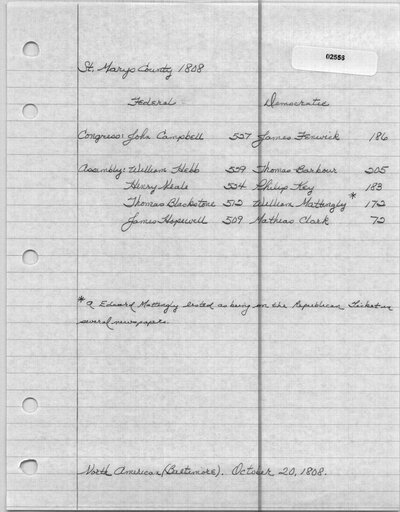 02558
St. Marys County 1808
Federal Democratic
Congress: John Campbell 527 James Fenwick 186
Assembly: William Hebb 559 Thomas Barbour 205
Henry Neale 524 Philip Key 183
Thomas Blackstone 512 William Mattingly * 172
James Hopewell 509 Mathias Clark 72
* A Edward Mattingly listed as being on the Republican Ticket in
several newspapers.
North American (Baltimore). October 20, 1808.